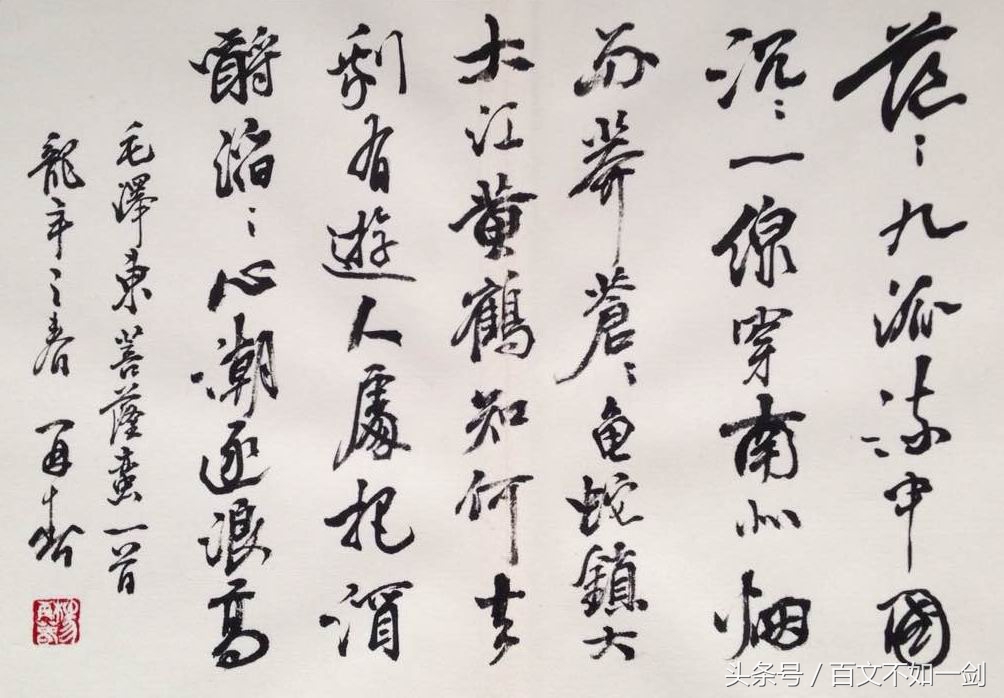 茫〻九派流中國
沉〻一線穿南北烟
雨莽蒼〻龟蛇鎖大
大江黄鶴知何去
剩有遊人處把酒
酹滔〻心潮逐浪高
毛澤東菩薩蛮一首
龍年之春 再春
头条号 / 百文不如一剑